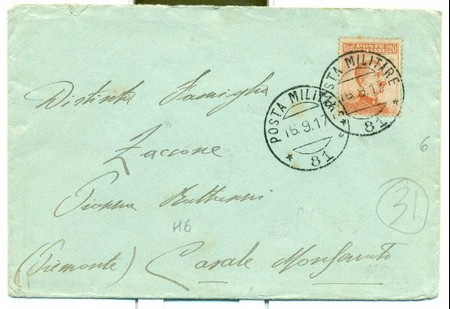 POSTA MILITARE
16.9.17
* 81 *
POSTA MILITARE
16.9.17
* 81 *
20
Distinta Famiglia
Zaccone
46
(Piemonte) Casale Monferrato
6
31